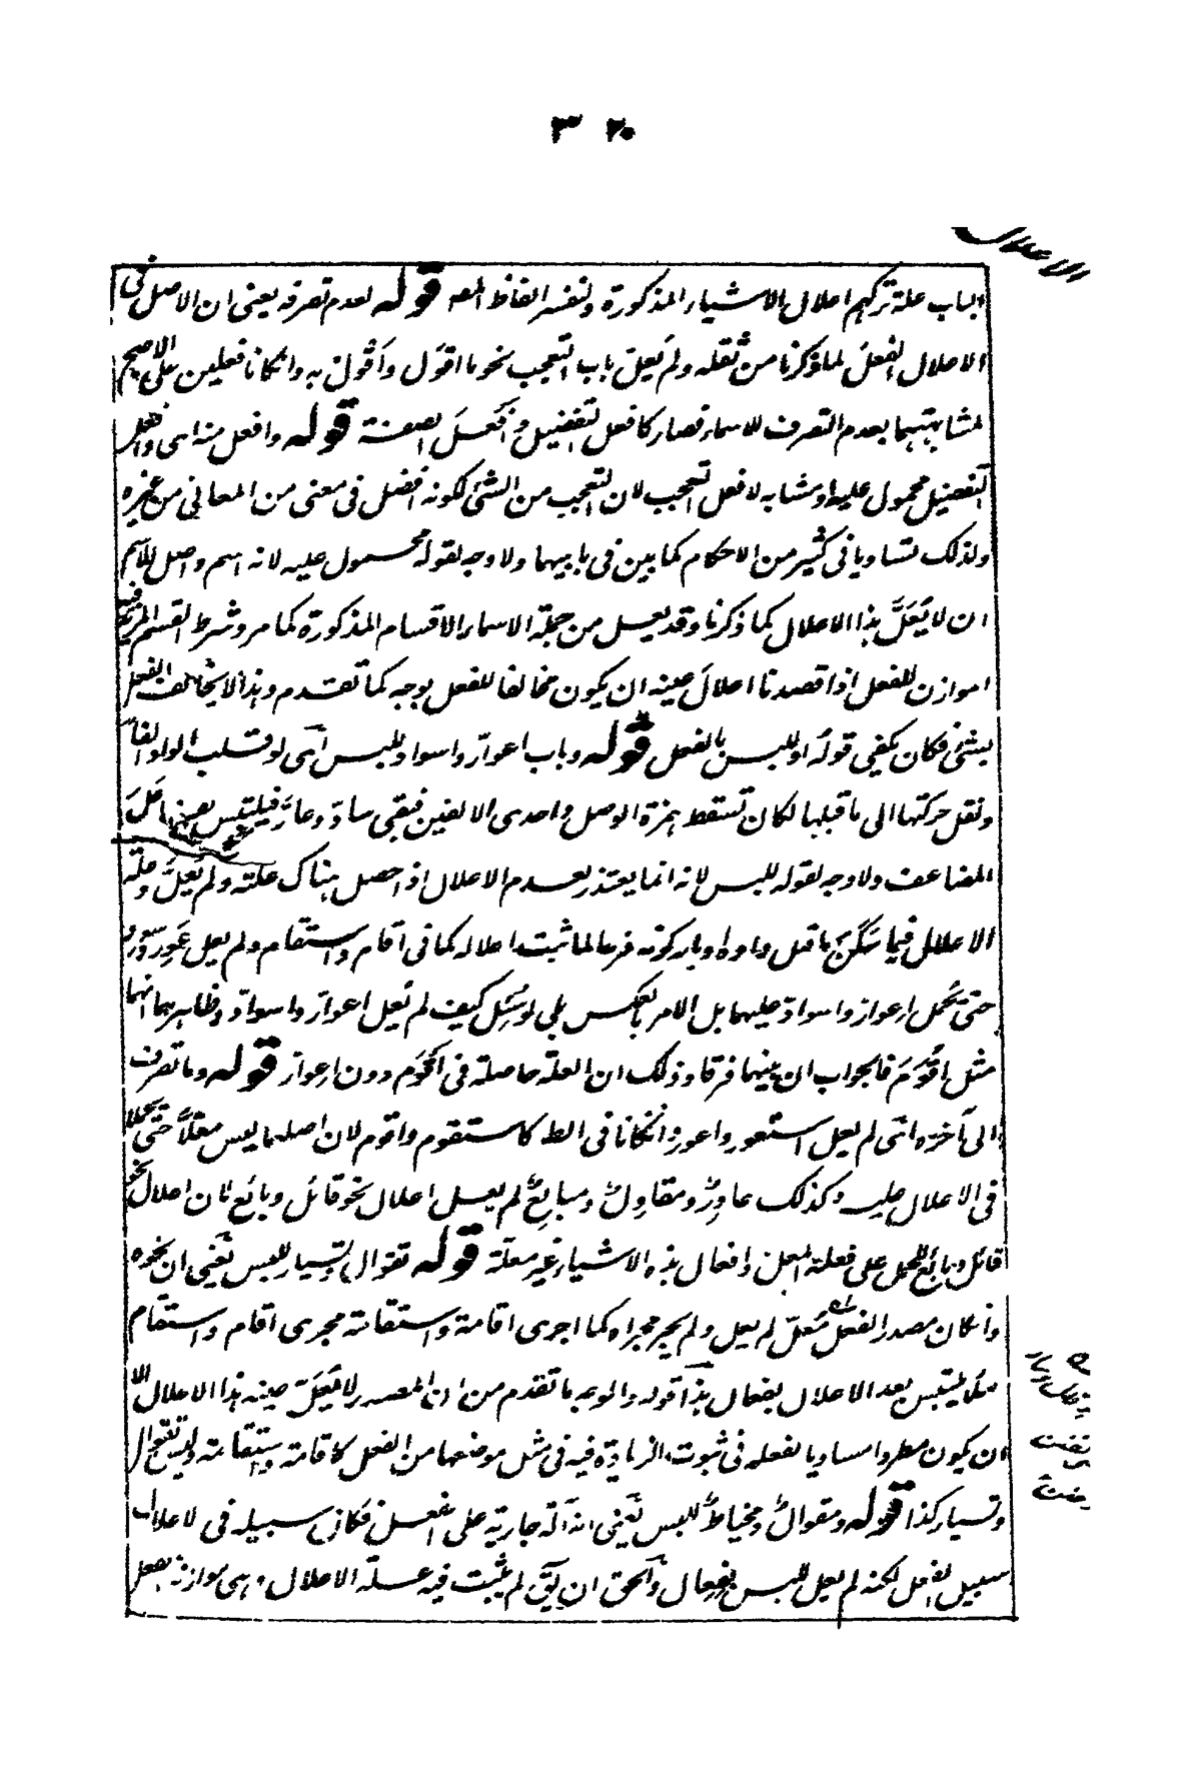 ٣٢٠
الاعلال
الباب علة تركهم اعلال الاشياء المذكورة ولنفسر الفاظ المصـ قوله لعدم تصرفه يعنى ان الاصل فى
الاعلال الفعل لما ذكرنا من ثقله ولم يعل باب التعجب نحو ما اقول واقول به وانكانا فعلين على الاصح
لمشابهتهما بعدم التصرف للاسماء فصار كافعل التفضيل وافعل الصفة قوله وافعل منه اى وافعل
التفضيل محمول عليه او مشابه لافعل التعجب لان التعجب من الشئ لكونه افضل فى معنى من المعانى من غيره
ولذلك تساويا فى كثير من الاحكام كما بين فى بابيهما ولا وجه لقوله محمول عليه لانه اسم واصل الاسم
ان لا يُعَلَّ هذا الاعلال كما ذكرنا وقد يعل من جملة الاسماء الاقسام المذكورة كما مر وشرط القسم المزيد فيه
الموازن للفعل اذا قصدنا اعلال عينه ان يكون مخالفا للفعل بوجه كما تقدم وهذا لا يخالف الفعل
بشئ فكان يكفى قوله او للبس بالفعل قوله وباب اعوارّ واسوادّ للبس اى لو قلبت الواو الفا
ونقل حركتها الى ما قبلها لكان تسقط همزة الوصل واحدى الالفين فيبقى سادّ وعارّ فيلتبس بفاعَلَ
المضاعف ولا وجه لقوله للبس لانه انما يعتذر بعدم الاعلال اذا حصل هناك علته ولم يُعَلَّ وعلة
الاعلال فيما سَكَنَ ما قبل واوه او يائه كونه فرعا لما ثبت اعلاله كما فى اقام واستقام ولم يعل عَوِرَ وسَوِدَ
حتى يُحمل اعوارّ واسوادّ عليهما بل الامر بالعكس بلى لو سُئل كيف لم يُعل اعوارّ واسوادّ وظاهرهما انهما
مثل اقْوَمَ فالجواب ان بينهما فرقا وذلك ان العلة حاصلة فى اقْوَم دون اعوارّ قوله وما تصرف
الى آخره اى لم يعل استعور واعور وانكانا فى الظـ كاستقوم واقوم لان اصلهما ليس معلاّ حتى يحملا
فى الاعلال عليه وكذلك عاوِرٌ ومقاوِلٌ ومبايعٌ لم يعل اعلال نحو قائل وبائع لان اعلال نحو
قائل وبائع للحمل على فعله المعل وافعال هذه الاشياء غير معلّة قوله تقوال وتسيار للبس يَعنى ان نحوه
وانكان مصدر الفعل مُعَلّ لم يعل ولم يجر مجراه كما اجرى اقامة واستقامة مجرى اقام واستقام
لئلا يلتبس بعد الاعلال بفعال هذا قوله والوجه ما تقدم من ان المصدر لا يُعَلّ عينه هذا الاعلال الا
ان يكون مطردا مساويا لفعله فى ثبوت الزيادة فيه فى مثل موضعها من الفعل كاقامة واستقامة وليس تقوال
وتسيار كذا قوله ومقوالٌ ومخياطٌ للبس يَعنى انه آلة جارية على الفعل فكان سبيله فى الاعلال
سبيل الفعل لكنه لم يعل للبس بفِعال والحق ان يق لم يثبت فيه علة الاعلال وهى موازنة الفعل